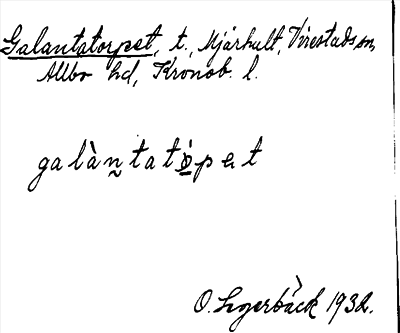 Galantstorpet, t., Mjärhult, Virestads sn,
Allbo hd, Kronob. l.
galàn̰tatò̲pet
O. Legerbäck 1932.